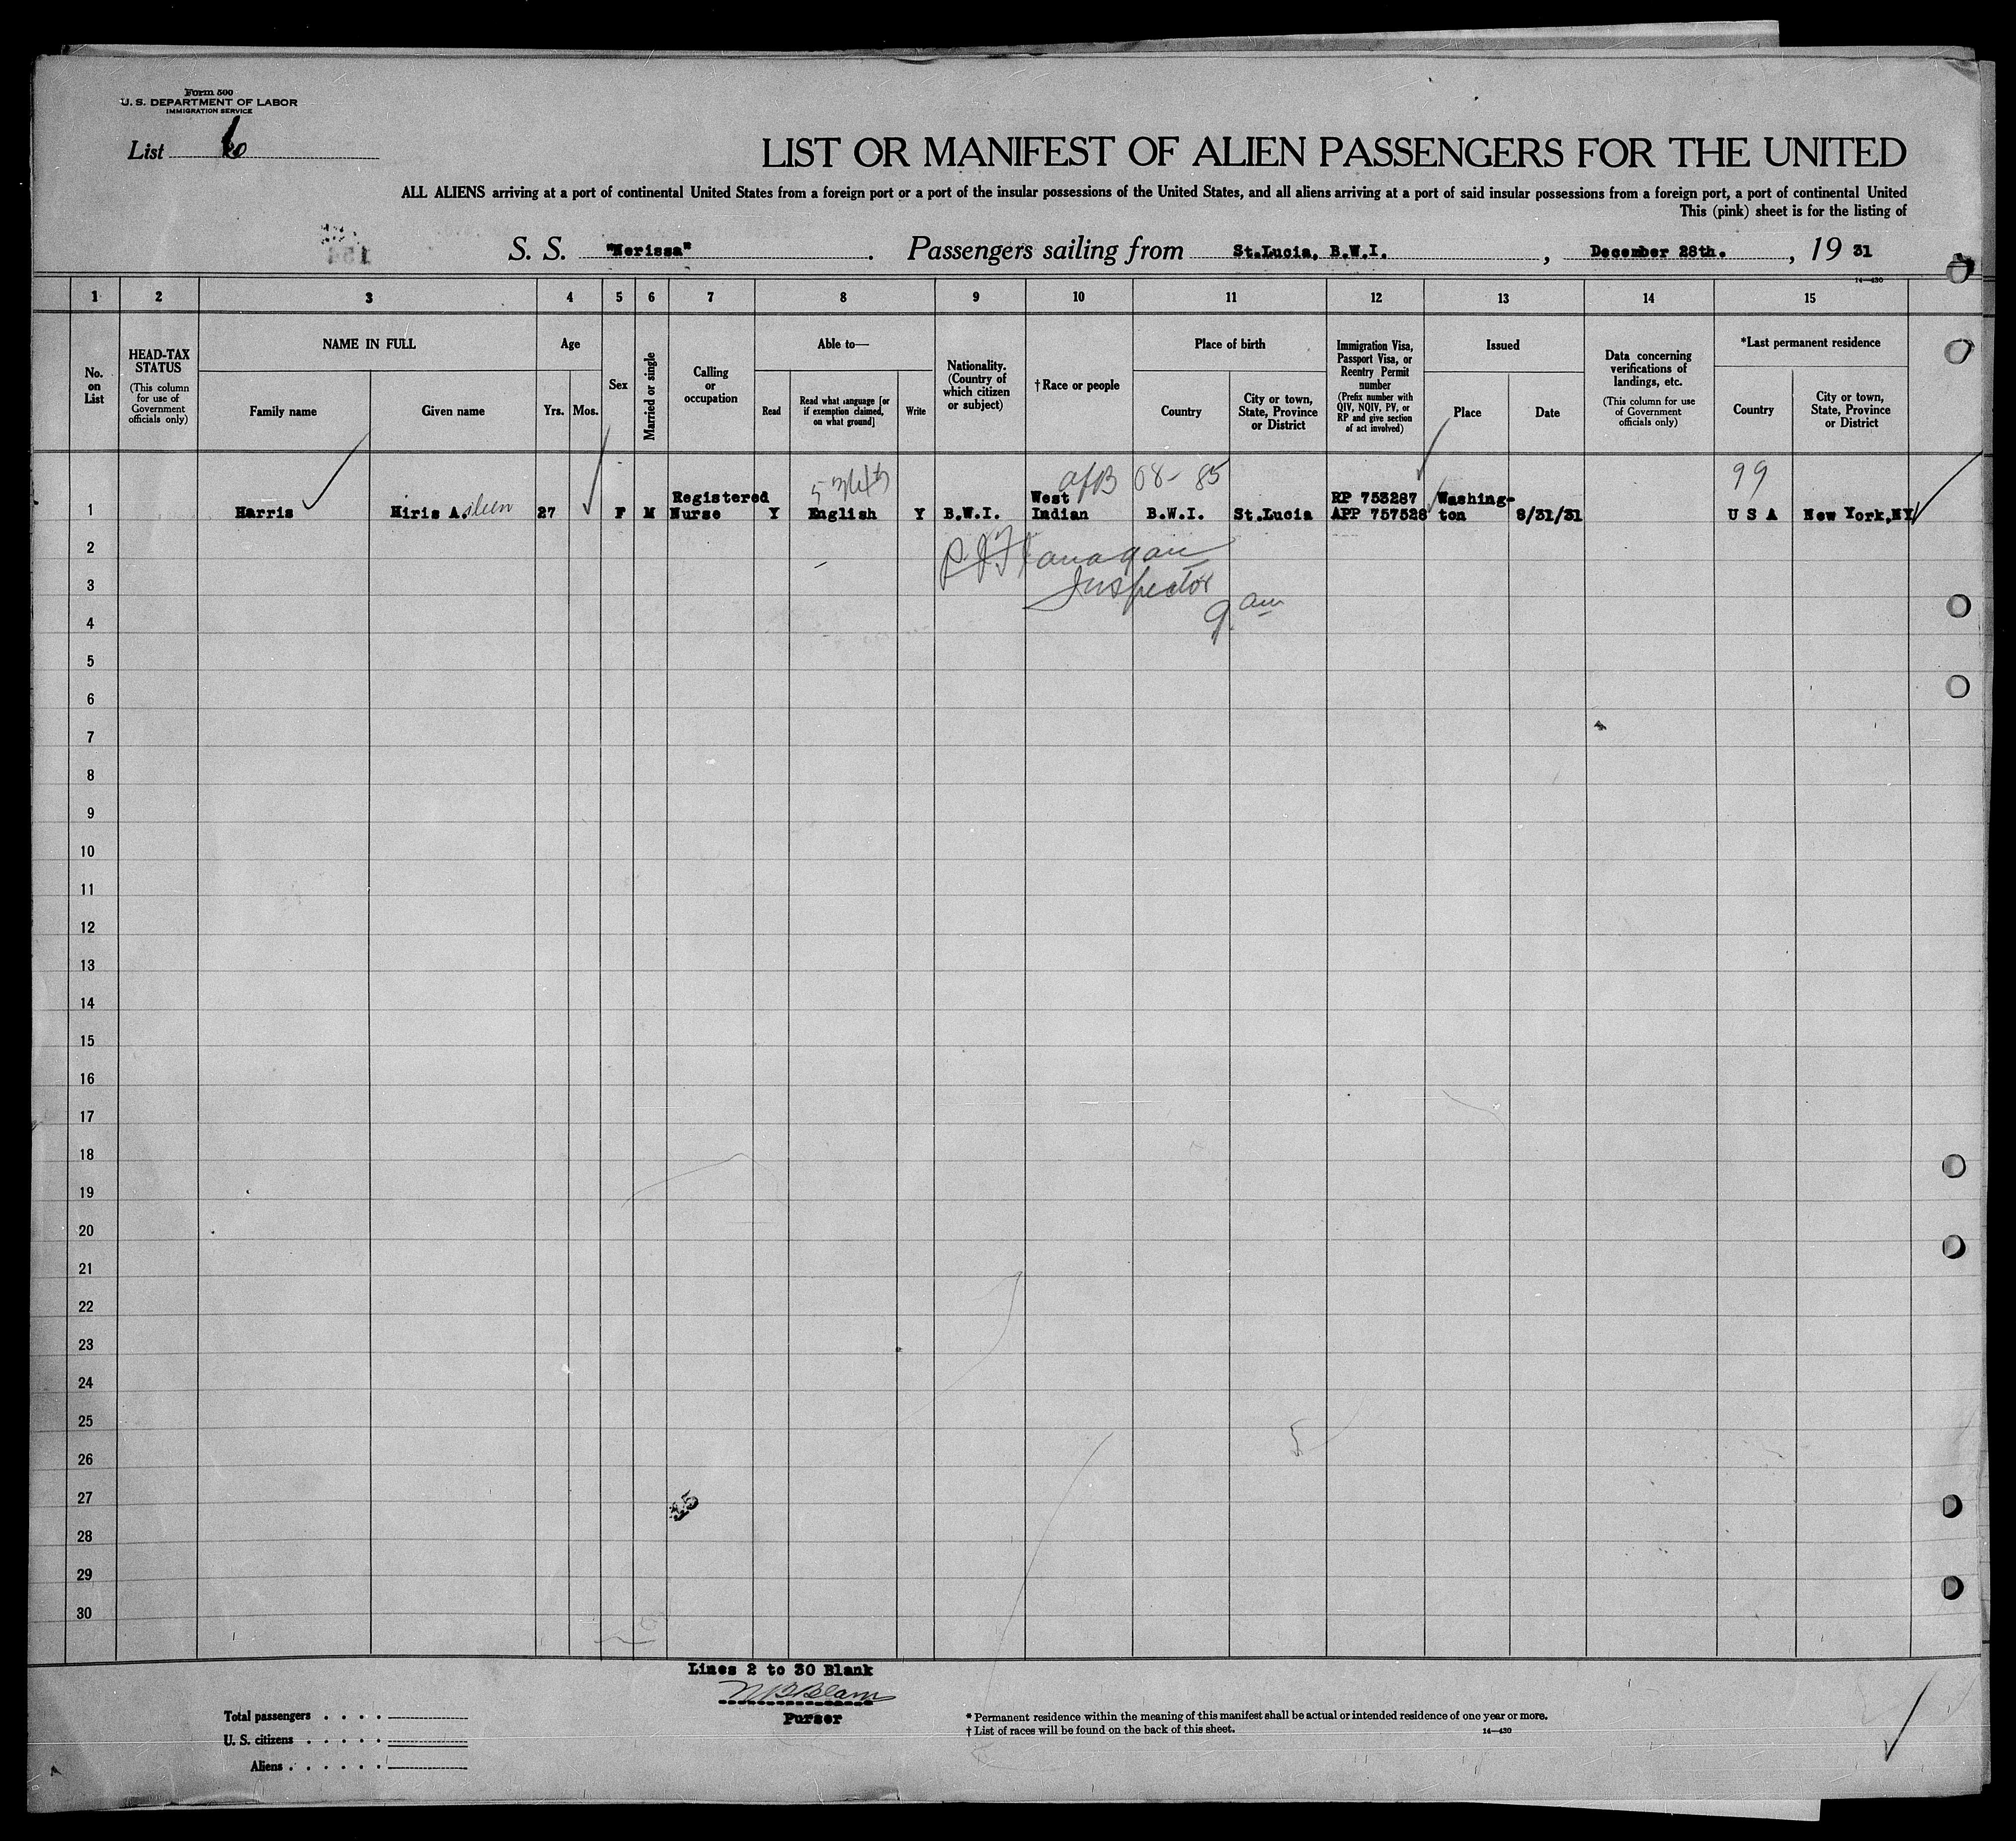 Form 500
U. S. DEPARTMENT OF LABOR
IMMIGRATION SERVICE
List 6
LIST OR MANIFEST OF ALIEN PASSENGERS FOR THE UNITED
ALL ALIENS arriving at a port of continental United States from a foreign port or a port of the insular possessions of the United States, and all aliens arriving at a port of said insular possessions from a foreign port, a port of continental United
This (pink) sheet is for the listing of
S. S. "Nerissa". Passengers sailing from St.Lucia, B.W.I., December 28th., 19 31
14—430
1 2 3 4 5 6 7 8 9 10 11 12 13 14 15
No. on List
HEAD-TAX STATUS
(This column for use of Government officials only)
NAME IN FULL
Family name
Given name
Age
Yrs.
Mos.
Sex
Married or single
Calling or occupation
Able to—
Read
Read what language [or if exemption claimed, on what ground]
Write
Nationality. (Country of which citizen or subject)
†Race or people
Place of birth
Country
City or town, State, Province or District
Immigration Visa, Passport Visa, or Reentry Permit number
(Prefix number with QIV, NQIV, PV, or RP and give section of act involved)
Issued
Place
Date
Data concerning verifications of landings, etc.
(This column for use of Government officials only)
*Last permanent residence
Country
City or town, State, Province or District
AfB 08- 85
99
1 Harris Hiris A.ileen 27 F M Registered Nurse Y English Y B.W.I. West Indian B.W.I. St.Lucia RP 753287 APP 757528 Washington 8/31/31 U S A New York,NY
2
P J Flanagan
3
Inspector
9 am
4
5
6
7
8
9
10
11
12
13
14
15
16
17
18
19
20
21
22
23
24
25
26
27
28
29
30
Lines 2 to 30 Blank
Purser
Total passengers . . . .
U. S. citizens . . . . .
Aliens . . . . . .
* Permanent residence within the meaning of this manifest shall be actual or intended residence of one year or more.
† List of races will be found on the back of this sheet.
14—430